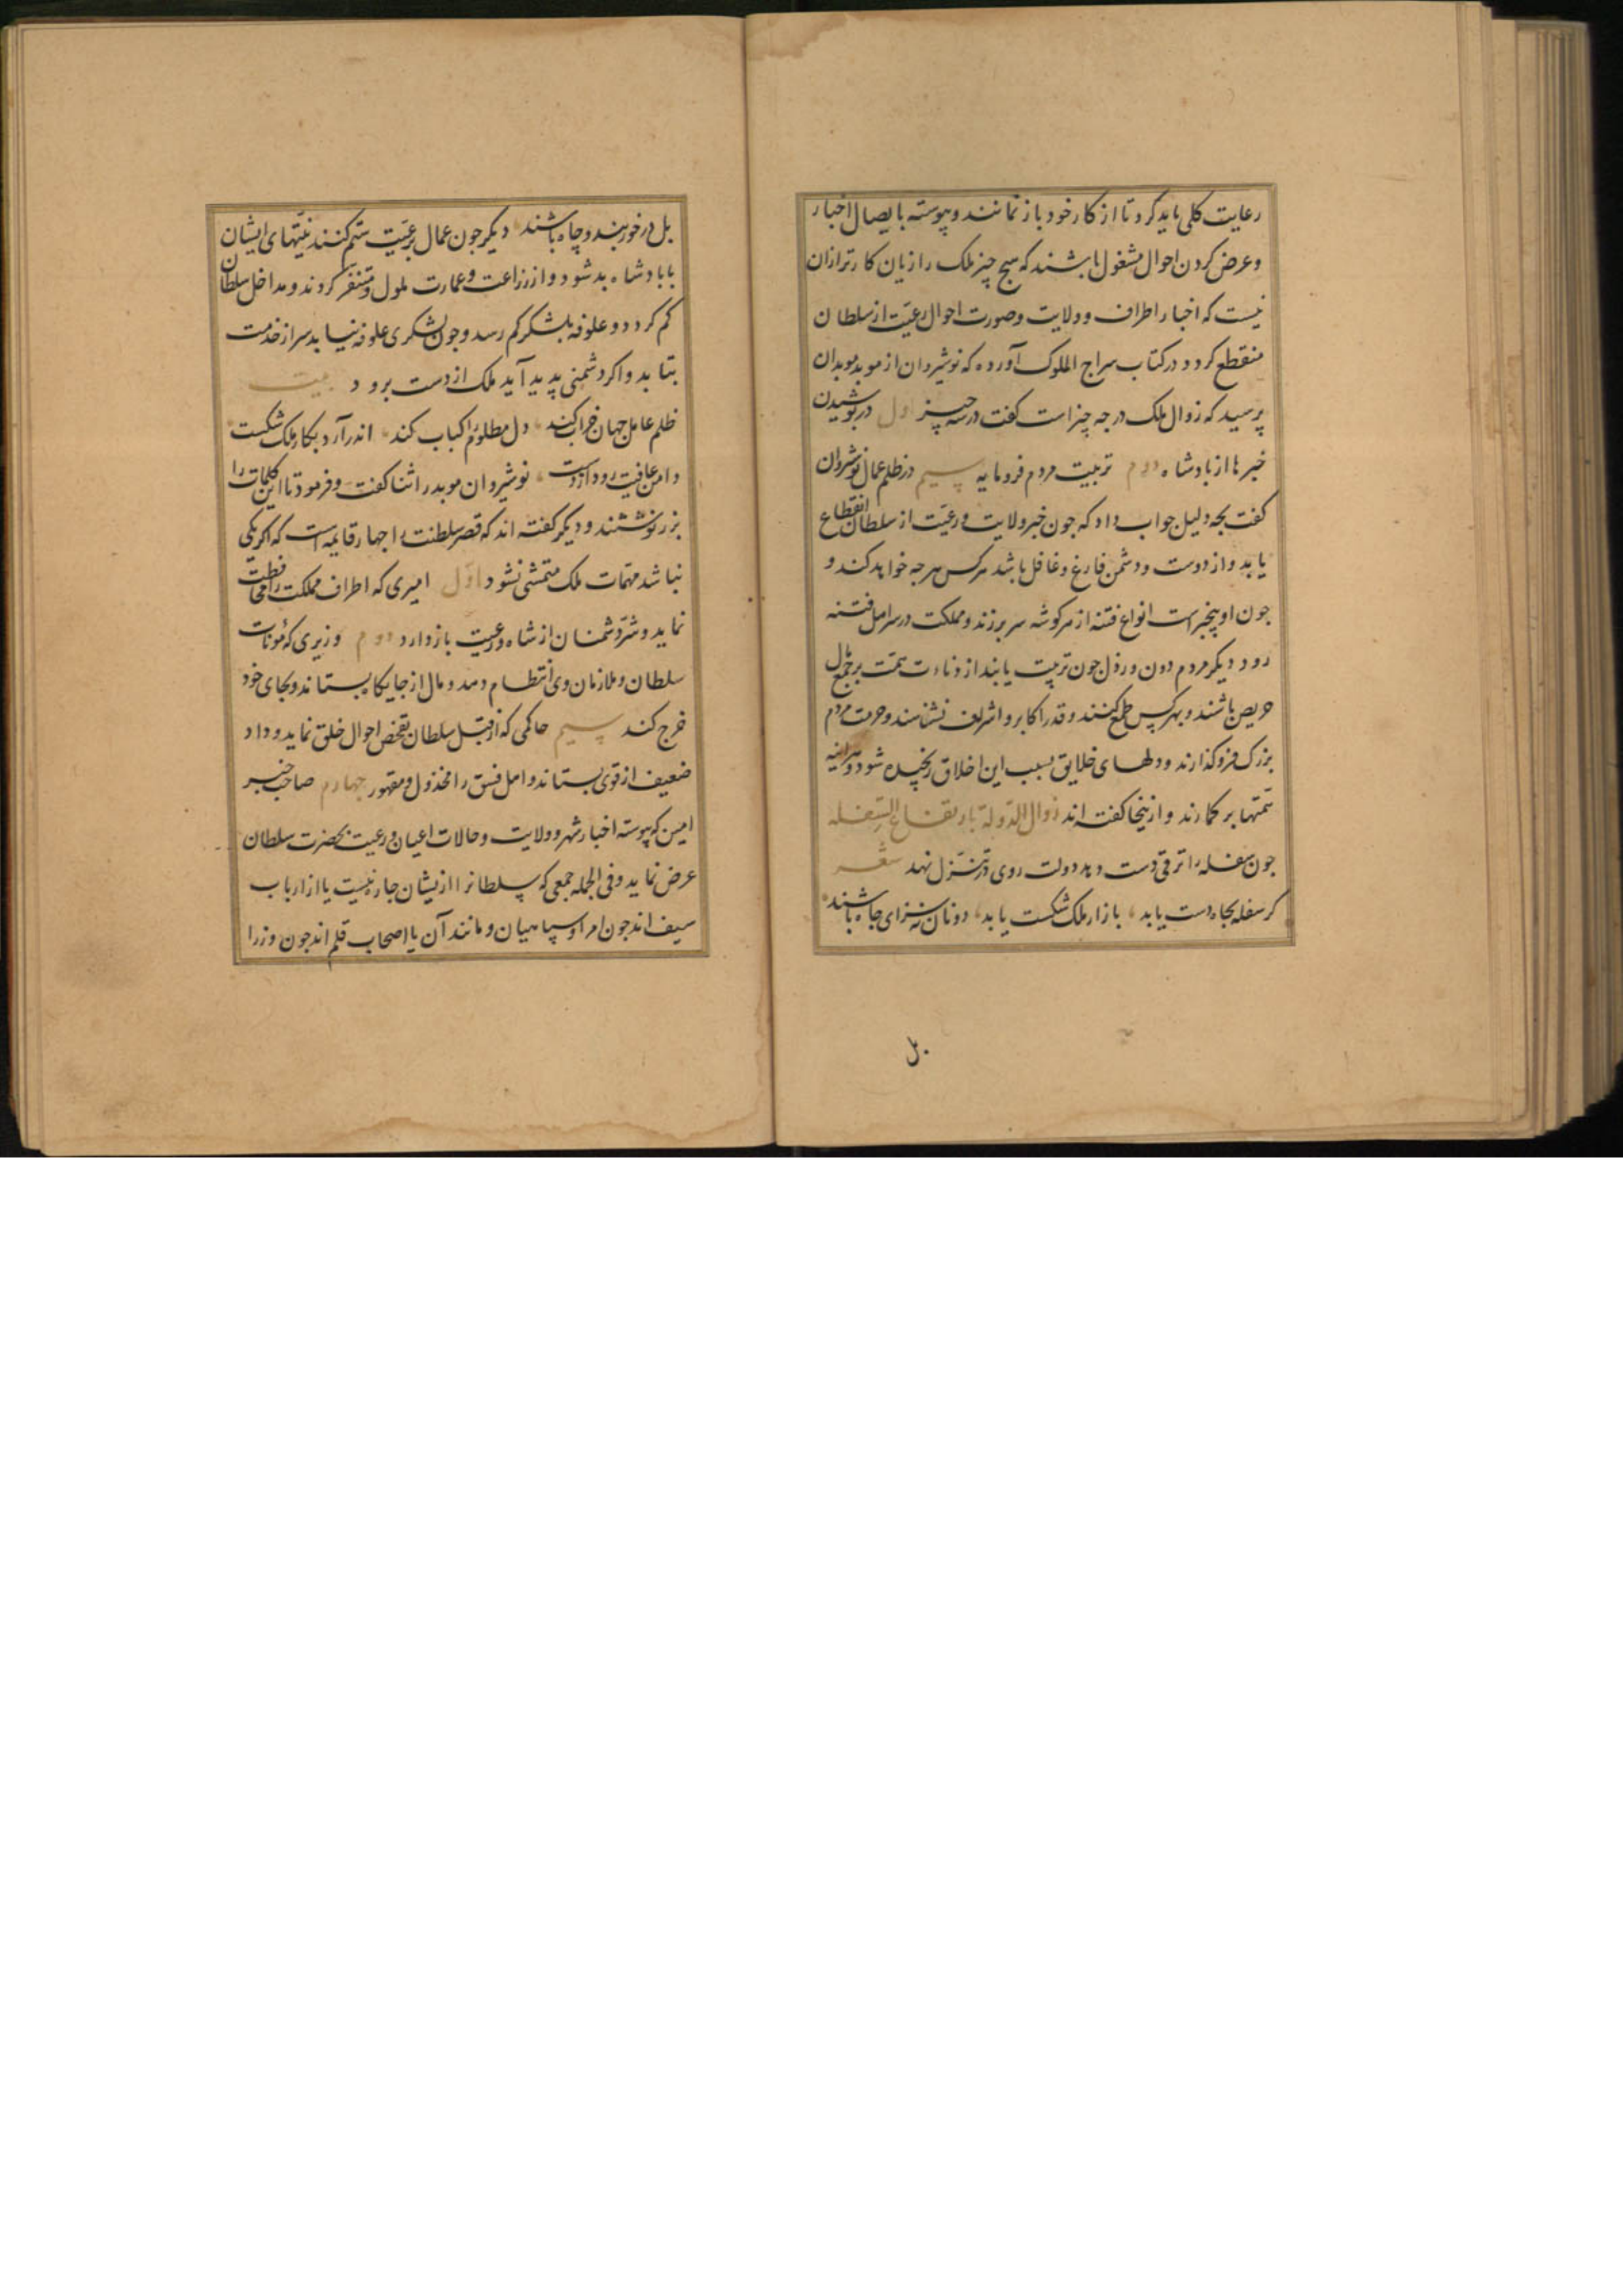 رعایت کلی باید کرد تا از کار خود باز نمانند و پیوسته بایصال اخبار
و عرض کردن احوال مشغول باشند که هیچ چیز ملک را زیان کارتر ازان
نیست که اخبار اطراف و ولایت و صورت احوال رعیّت از سلطان
منقطع کردد در کتاب سراج الملوک آورده که نوشیروان از موبد موبدان
پرسید که زوال ملک در جه چیز است کفت در سه چیز اول در پوشیدن
خبرها از بادشاه دوم تربیت مردم فرومایه سیم در ظلم عمال نوشروان
کفت بجه دلیل جواب داد که جون خبر ولایت و رعیّت از سلطان انقطاع
یابد و از دوست و دشمن فارغ و غافل باشد هرکس هرجه خواهد کند و
جون او بیخبر است انواع فتنه از هر کوشه سر برزند و مملکت در سر اهل فتنه
رود دیکر مردم دون و رذل جون تربیت یابند از دناءت همّت بر جمع مال
حریص باشند و بهر کس طمع کنند و قدر اکابر و اشراف نشناسند و حرمت مردم
بزرک فرو کذارند و دلهای خلایق بسبب این اخلاق رنجیده شود و هرآینه
همّتها بر کمارند و ازینجا کفته اند زوال الدّولة بارتفاع السّفله
جون سفله را ترقی دست دهد دولت روی در تنزّل نهد شعر
کر سفله بجاه دست یابد، بازار ملک شکست یابد، دونان نه سزای جاه باشند
بل
بل در خور بند و چاه باشند دیکر جون عمال بر رعیّت ستم کنند نیّتهای ایشان
با بادشاه بد شود و از زراعت و عمارت ملول و متنفر کردند و مداخل سلطان
کم کردد و علوفه بلشکر کم رسد و جون لشکری علوفه نیابد سر از خدمت
بتابد و اکر دشمنی پدید آید ملک از دست برود بیت
ظلم عامل جهان خراب کند، دل مظلوم را کباب کند، اندر آرد بکار ملک شکست
دامن عافیت رود از دست، نوشیروان موبد را ثنا کفت و فرمود تا این کلمات را
بزر نوشتند و دیکر کفته اند که قصر سلطنت را جهار قایمه است که اکر یکی
نباشد مهمّات ملک متمشی نشود اوّل امیری که اطراف مملکت را محافظت
نماید و شرّ دشمنان از شاه و رعیت باز دارد دوم وزیری که مؤنات
سلطان و ملازمان وی انتظام دهد و مال از جایکاه بستاند و بجای خود
خرج کند سیم حاکمی که از قبل سلطان تفحّص احوال خلق نماید و داد
ضعیف از قوی بستاند و اهل فسق را مخذول و مقهور جهارم صاحب خبر
امین که پیوسته اخبار شهر و ولایت و حالات اعیان و رعیت بحضرت سلطان
عرض نماید و فی الجمله جمعی که سلطانرا ازیشان جاره نیست یا از ارباب
سیف اند جون امرا و سپاهیان و مانند آن یا اصحاب قلم اند جون وزرا